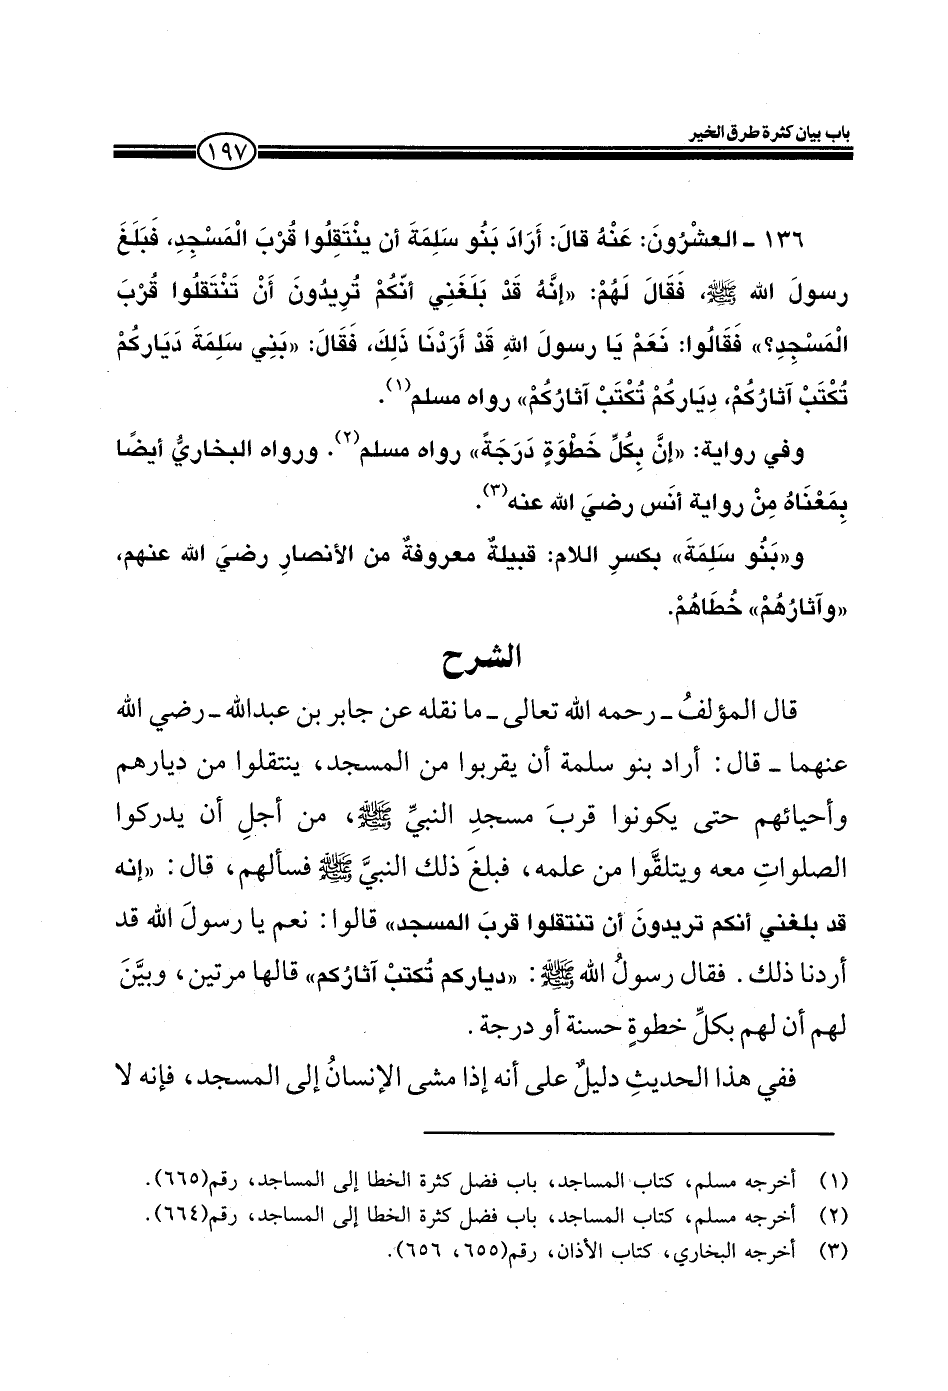 باب بيان كثرة طرق الخير
١٩٧
١٣٦ ـ العشْرُونَ: عَنْهُ قالَ: أَرَادَ بَنُو سَلِمَةَ أن ينْتَقِلُوا قُرْبَ الْمَسْجِدِ، فَبَلَغَ
رسولَ الله ﷺ، فَقَالَ لَهُمْ: «إنَّهُ قَدْ بَلَغَنِي أنّكُمْ تُرِيدُونَ أَنْ تَنْتَقلُوا قُرْبَ
الْمَسْجِدِ؟» فَقَالُوا: نَعَمْ يَا رسولَ اللهِ قَدْ أَرَدْنَا ذَلِكَ، فَقَالَ: «بَنِي سَلِمَةَ دَيَاركُمْ
تُكْتَبْ آثَارُكُمْ، دِيَاركُمْ تُكْتَبْ آثارُكُمْ» رواه مسلم(١).
وفي رواية: «إنَّ بِكُلِّ خَطْوَةٍ دَرَجَةً» رواه مسلم(٢). ورواه البخاريُّ أيضًا
بِمَعْنَاهُ مِنْ رواية أنَس رضيَ الله عنه(٣).
و«بَنُو سَلِمَةَ» بكسرِ اللام: قبيلةٌ معروفةٌ من الأنصارِ رضيَ الله عنهم،
«وآثارُهُمْ» خُطَاهُمْ.
الشرح
قال المؤلفُ ـ رحمه الله تعالى ـ ما نقله عن جابر بن عبدالله ـ رضي الله
عنهما ـ قال: أراد بنو سلمة أن يقربوا من المسجد، ينتقلوا من ديارهم
وأحيائهم حتى يكونوا قربَ مسجدِ النبيِّ ﷺ، من أجلِ أن يدركوا
الصلواتِ معه ويتلقَّوا من علمه، فبلغَ ذلك النبيَّ ﷺ فسألهم، قال: «إنه
قد بلغني أنكم تريدونَ أن تنتقلوا قربَ المسجد» قالوا: نعم يا رسولَ الله قد
أردنا ذلك. فقال رسولُ الله ﷺ: «دياركم تُكتبْ آثارُكم» قالها مرتين، وبيَّنَ
لهم أن لهم بكلِّ خطوةٍ حسنة أو درجة.
ففي هذا الحديثِ دليلٌ على أنه إذا مشى الإنسانُ إلى المسجد، فإنه لا
(١) أخرجه مسلم، كتاب المساجد، باب فضل كثرة الخطا إلى المساجد، رقم(٦٦٥).
(٢) أخرجه مسلم، كتاب المساجد، باب فضل كثرة الخطا إلى المساجد، رقم(٦٦٤).
(٣) أخرجه البخاري، كتاب الأذان، رقم(٦٥٥، ٦٥٦).